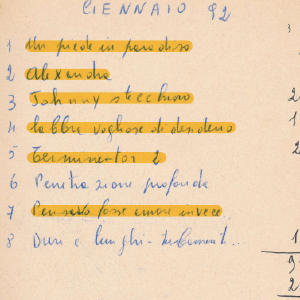 GENNAIO 92
1 Un piede in paradiso
2 Alexandra
3 Johnny stecchino
4 Labbra vogliose di desiderio
5 Terminator 2
6 Penetrazione profonda
7 Pensavo fosse amore invece
8 Duri e lunghi -